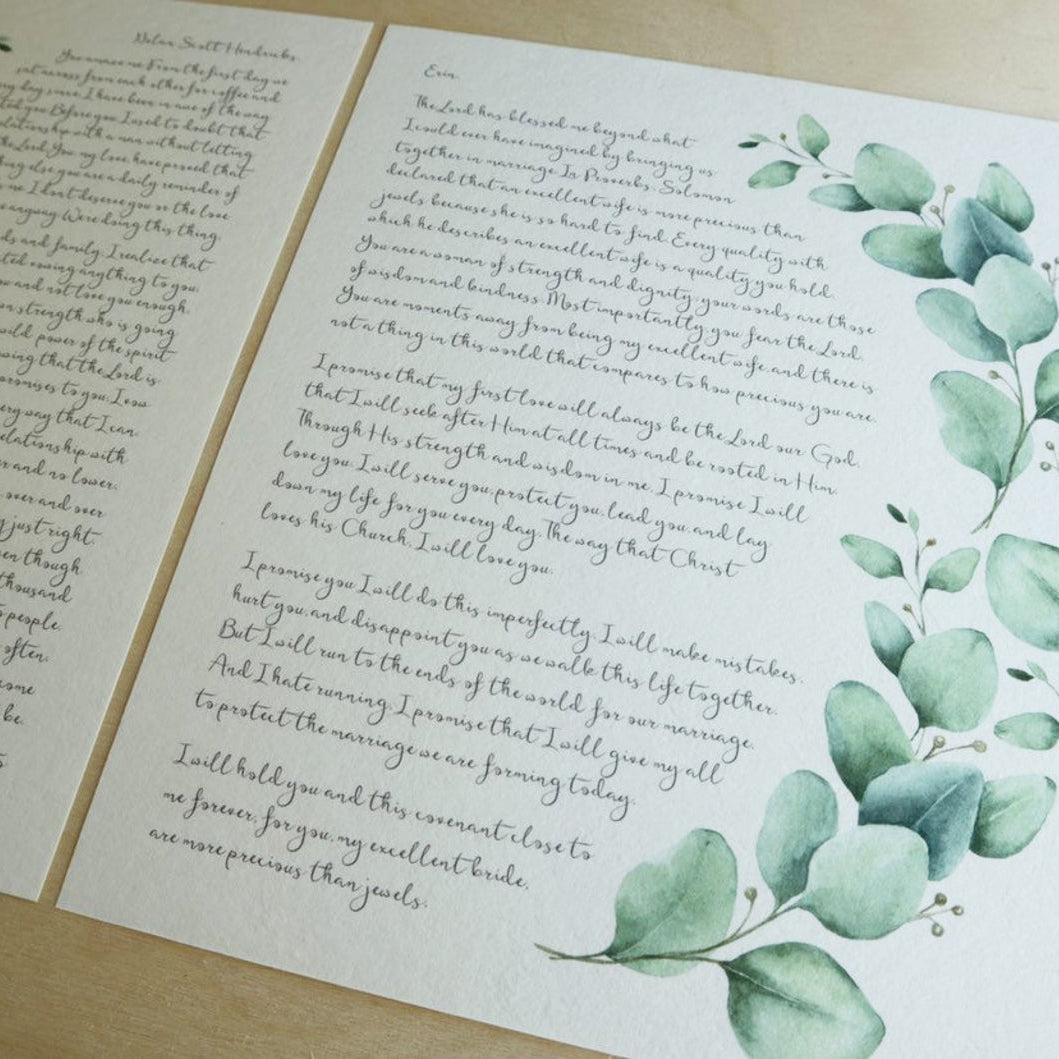 Nolan Scott Hendricks.
You amaze me. From the first day we
sat across from each other for coffee and
day since. I have been in awe of the way
you. Before you I used to doubt that
with a man without letting
the Lord. You my love, have proved that
else you are a daily reminder of
me. I don't deserve you or the love
anyway. We're doing this thing.
and family, I realize that
owing anything to you,
and not love you enough.
strength who is going
wild power of the spirit
that the Lord is
promises to you. I vow
way that I can.
relationship with
and no lower.
over and over
just right.
though
thousand
people.
often.
be.
Erin,
The Lord has blessed me beyond what
I could ever have imagined by bringing us
together in marriage. In Proverbs, Solomon
declared that an excellent wife is more precious than
jewels because she is so hard to find. Every quality with
which he describes an excellent wife is a quality you hold.
You are a woman of strength and dignity, your words are those
of wisdom and kindness. Most importantly, you fear the Lord.
You are moments away from being my excellent wife, and there is
not a thing in this world that compares to how precious you are.
I promise that my first love will always be the Lord our God,
that I will seek after Him at all times and be rooted in Him.
Through His strength and wisdom in me, I promise I will
love you. I will serve you, protect you, lead you, and lay
down my life for you every day. The way that Christ
loves his Church, I will love you.
I promise you, I will do this imperfectly. I will make mistakes,
hurt you, and disappoint you as we walk this life together.
But I will run to the ends of the world for our marriage.
And I hate running. I promise that I will give my all
to protect the marriage we are forming today.
I will hold you and this covenant close to
me forever, for you, my excellent bride,
are more precious than jewels.